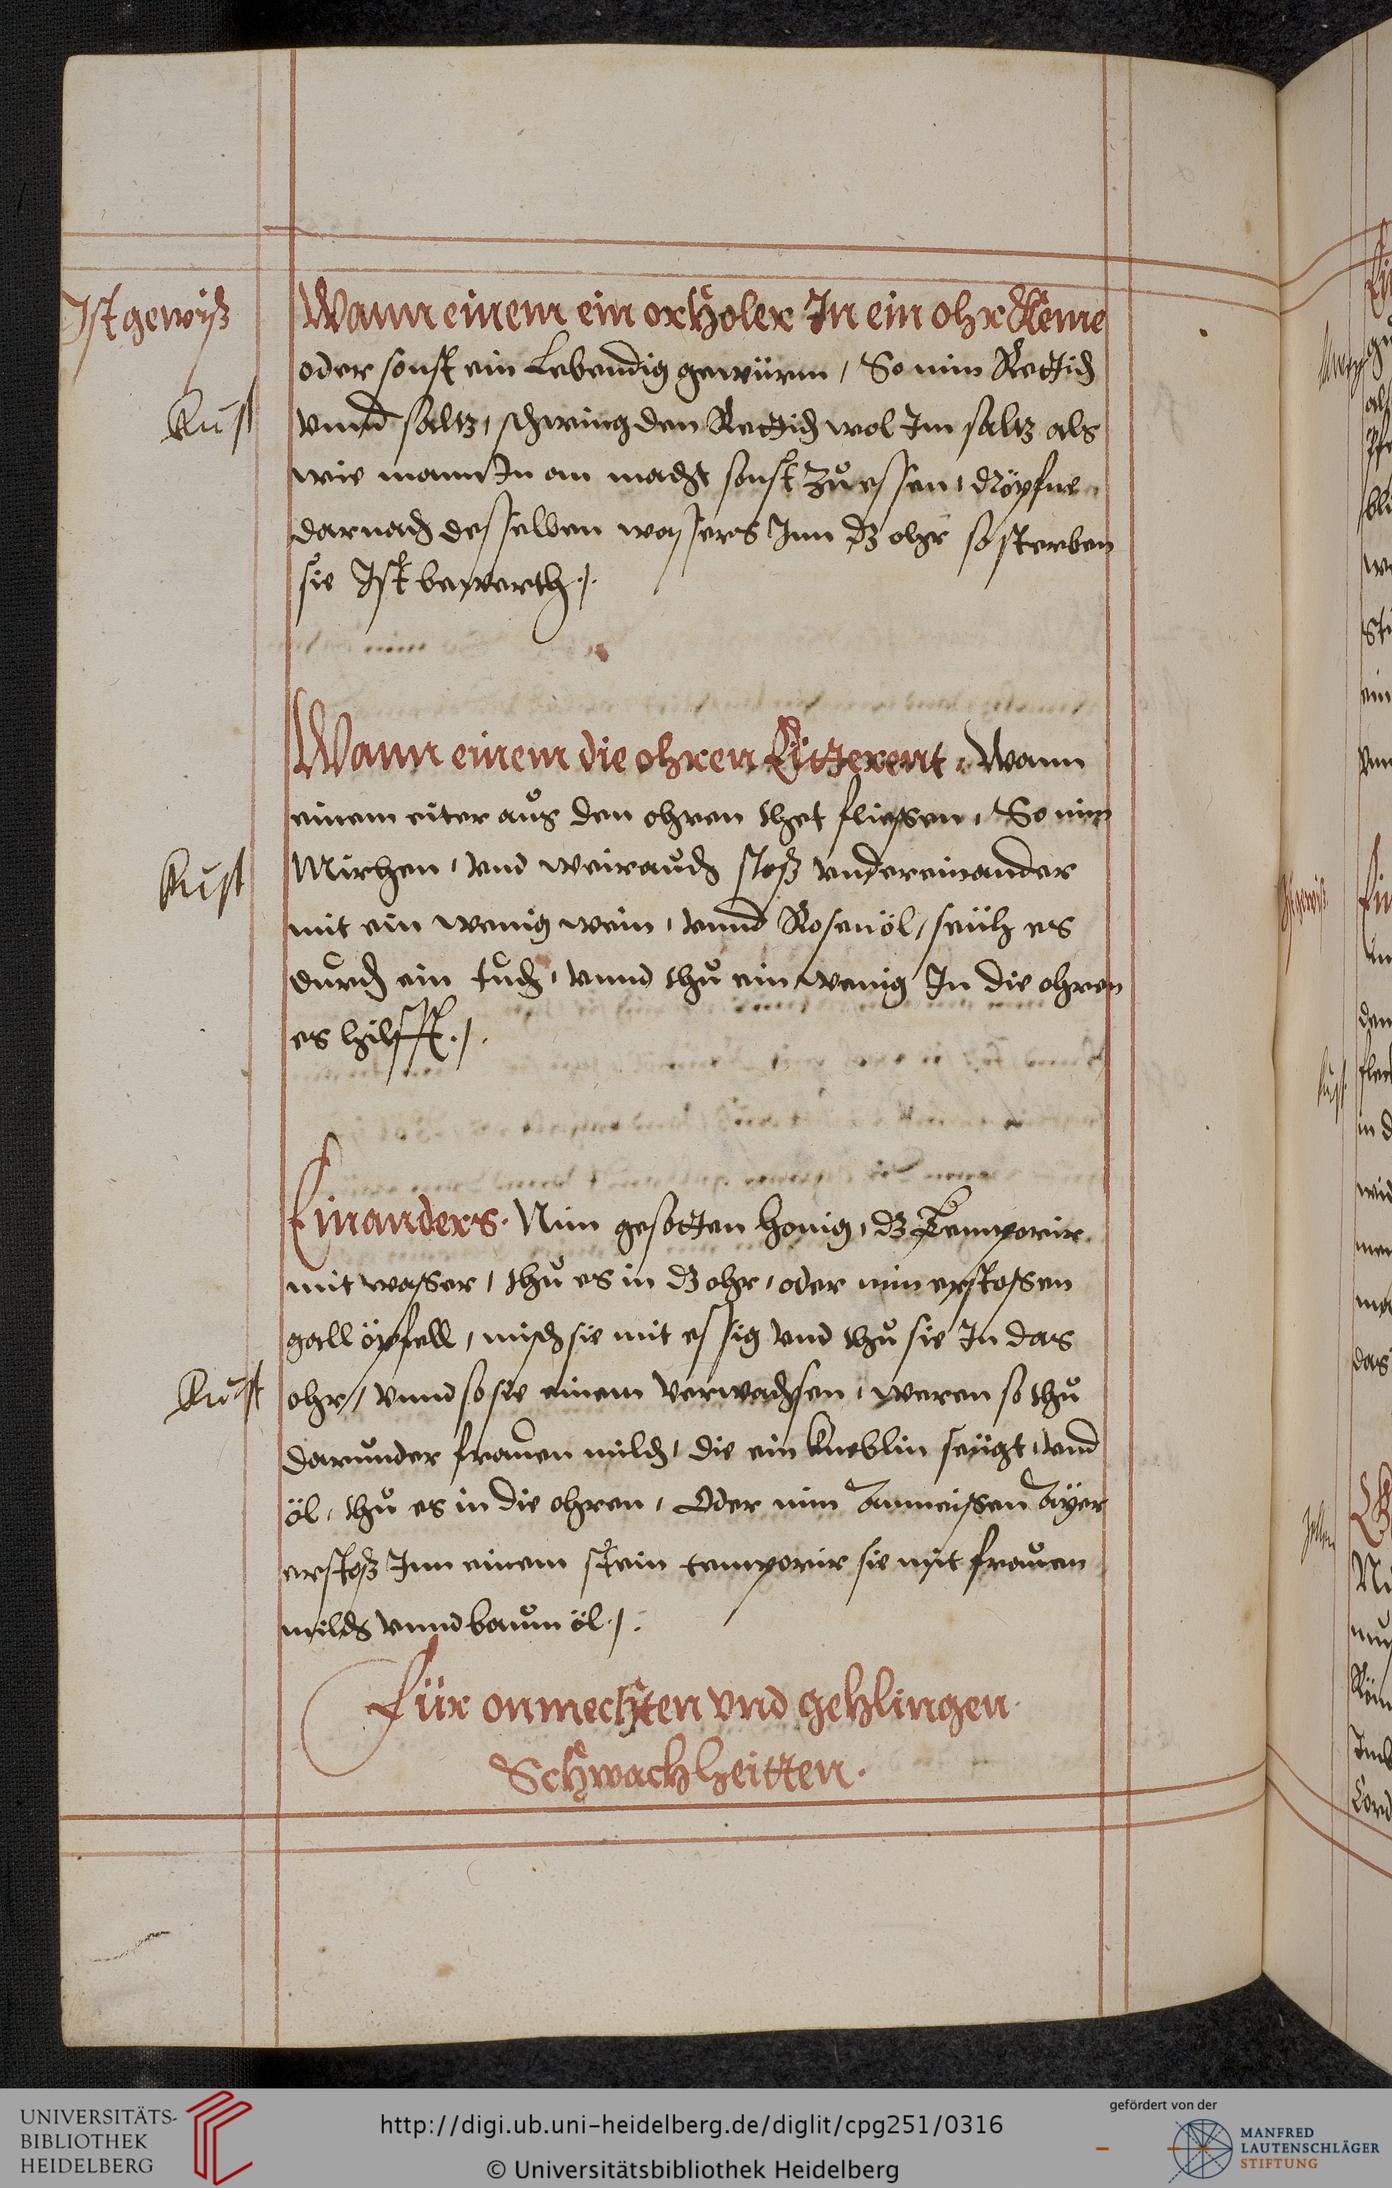 Ist gewiß
Wann einem ein orholer In ein ohr Keme
oder sonst ein Lebendig gewürm / So nim Rettich
Rust
vnnd saltz, schwing den Rettich wol Im saltz als
wie mann In an macht sonst zů essen, dröpfne
darnach desselben wassers Inn dz ohr so sterben
sie Ist bewerth ./.
Wann einem die ohren Eitterent, Wann
einem eiter aůs den ohren thet fliessen, So nim
Rust
Mirhen, vnd weirauch stoß vndereinander
mit ein wenig wein, vnnd Rosenöl, seüh es
durch ein tuch, vnnd thů ein wenig In die ohren
es hilfft ./.
Ein anders. Nim gesotten honig, dz Temporir
mit wasser, thů es in dz ohr, oder nim erstossen
gall öpfell, misch sie mit essig vnd thů sie In das
Rust
ohr, vnnd so sie einem verwachsen, weren so thů
darunder frauen milch, die ein Kneblin seügt, vnd
öl, thů es in die ohren, Oder nim Anmeissen Ayer
erstoß Inn einem stein temporir sie mit frauen
milch vnnd baum öl ./.
Für onmechten vnd gehlingen
Schwachheitten.
UNIVERSITÄTS-
BIBLIOTHEK
HEIDELBERG
http://digi.ub.uni-heidelberg.de/diglit/cpg251/0316
© Universitätsbibliothek Heidelberg
gefördert von der
MANFRED
LAUTENSCHLÄGER
STIFTUNG